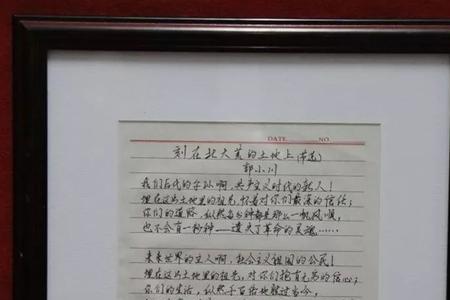 DATE NO
刻在北大荒的土地上(节选)
郭小川
我们后代的子孙啊，共产主义时代的新人！
埋在这片土地里的祖先，怀着对你们最深的信任；
你们的道路，纵然每分钟都是那么一帆风顺，
也不会有一秒钟——遗失了革命的灵魂……
未来世界的主人啊，社会主义祖国的公民！
埋在这片土地里的祖先，对你们抱有无穷的信心；
你们的生活，纵然千百倍地胜过当今，